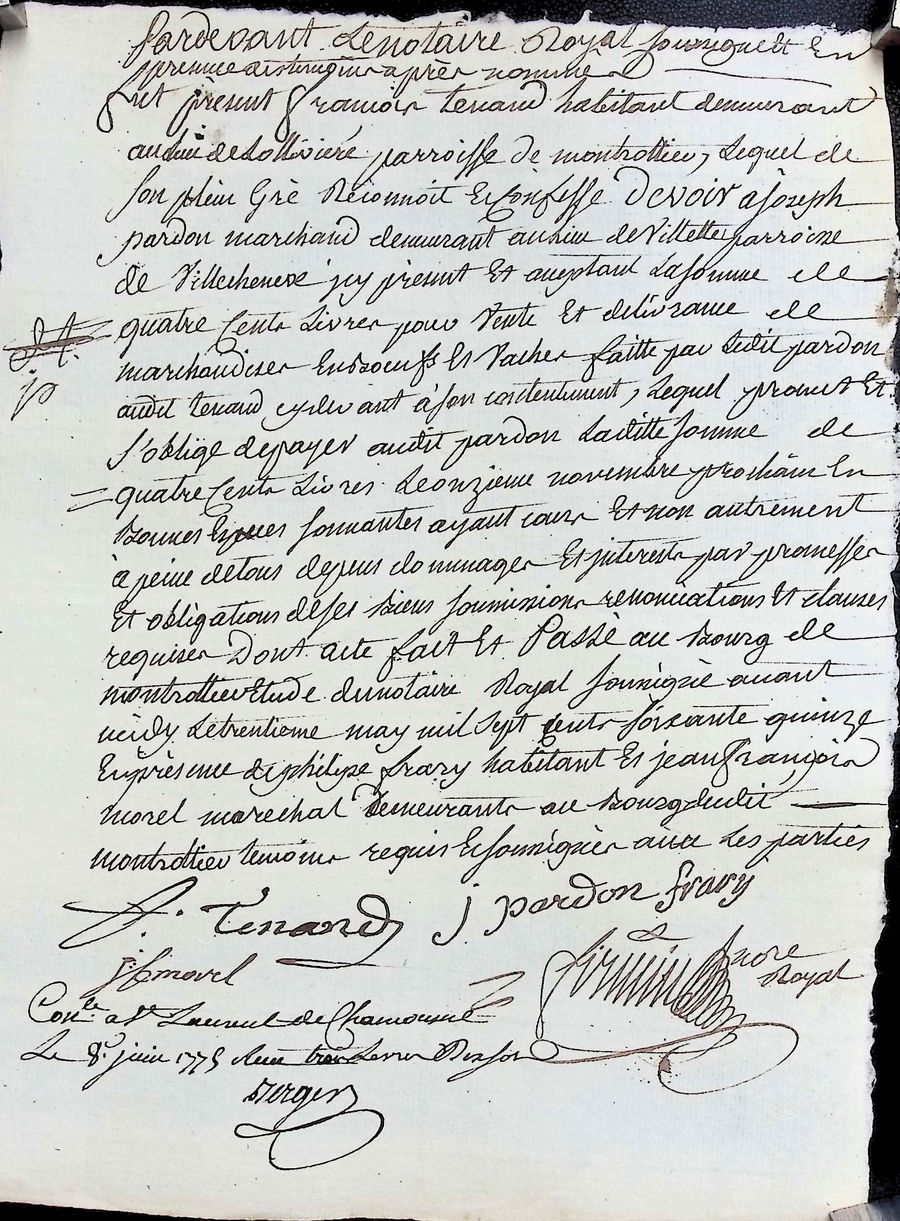 Pardevant Lenotaire Royal soussigné et En
presence destemoins après nommés
fut present francois Tenand habitant demeurant
aulieu de Lollivière parroisse de montrottier, Lequel de
son plein Gré Reconnoit Et Confesse Devoir a joseph
pardon marchand demeurant aulieu de Villette parroisse
de Villecheneve jcy present Et aceptant La somme de
quatre Cents Livres pour Vente Et delivrance de
marchandises En Boeufs Et Vaches faitte par Ledit pardon
audit tenand cydevant à son contentement, Lequel promet Et
s'oblige depayer audit pardon Laditte somme de
quatre Cents Livres Le onzieme novembre prochain En
Bonnes Especes sonnantes ayant cours Et non autrement
à peine detous depens dommages Et jnterests par promesses
Et obligations deses Biens soumissions renonciations Et clauses
requises Dont acte fait Et Passé au Bourg de
montrottier Etude dunotaire Royal soussigné avant
midy Le trentieme may mil sept cents soixante quinze
En presence de philipe frary habitant Et jean françois
morel marechal Demeurants au Bourg dudit
montrottier temoins requis Et soussignés avec Les parties
f. Tenand j pardon frary
jf morel
Royal
Con.le a St Laurent de Chamousset
Le 8e juin 1775 Reçu
Berger